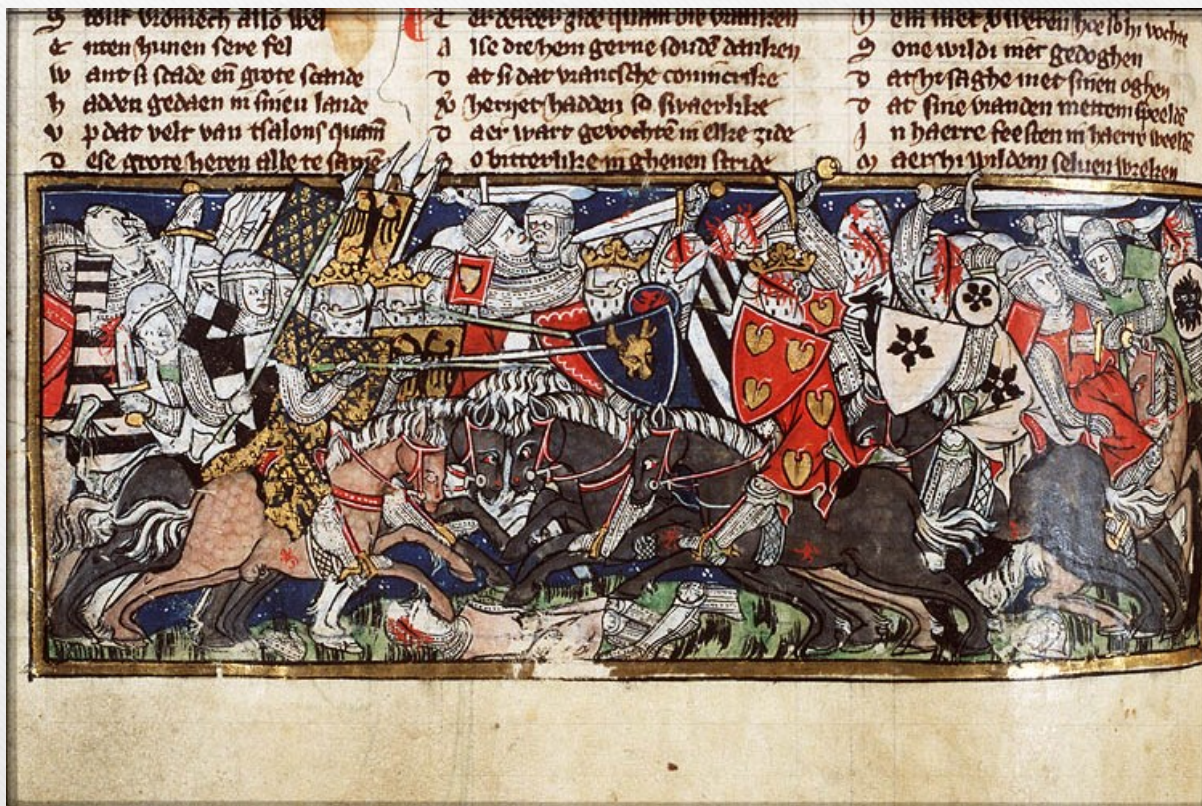 vromech also wel
E nten hunen sere fel
W ant si scade en̄ grote scande
H adden gedaen in sinen lande
V p dat velt van tsalons quam
D ese grote heren alle te samē
er derder zide quam die vranken
A lse die hem gerne soudē danken
D at si dat vrancsche conincrike
herijet hadden so swaerlike
D aer wart gevochtē in elke zide
o bitterlike in ghenen stride
em met weren hoe so hi vochte
S one wildi niet gedoghen
D at hi saghe met sinen oghen
D at sine vianden mettem speeldē
I n haerre feesten in haerre weelde
M aer hi wildem seluen wreken